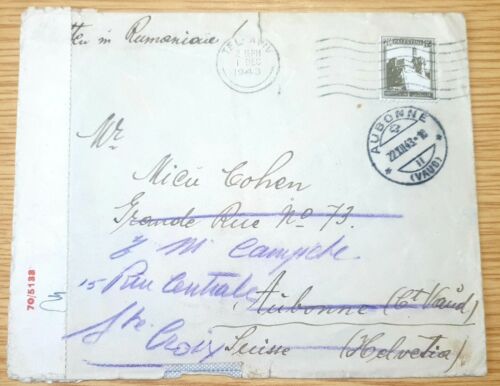 in Rumanian
TEL AVIV
1 DEC
1943
PALESTINE
AUBONNE
22.XII.43-18
(VAUD)
Mr
Micu Cohen
Grande Rue No 73.
M. Campiche
15 Rue Centrale
Aubonne (Ct Vaud)
Ste
Croix
Suisse (Helvetia)
70/5138